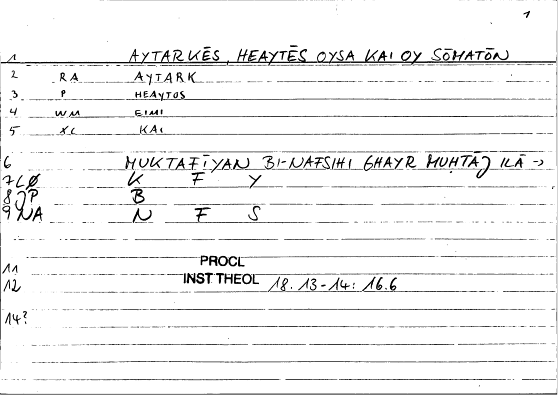 1
1 AYTARKĒS, HEAYTĒS OYSA KAI OY SŌMATŌN
2 RA AYTARK
3 P HEAYTOS
4 WM EIMI
5 XC KAI
6 MUKTAFIYAN BI-NAFSIHI GHAYR MUHTĀJ ILĀ →
7 LØ K F Y
8 JP B
9 NA N F S
PROCL
11
INST THEOL
12 18.13-14: 16.6
14?